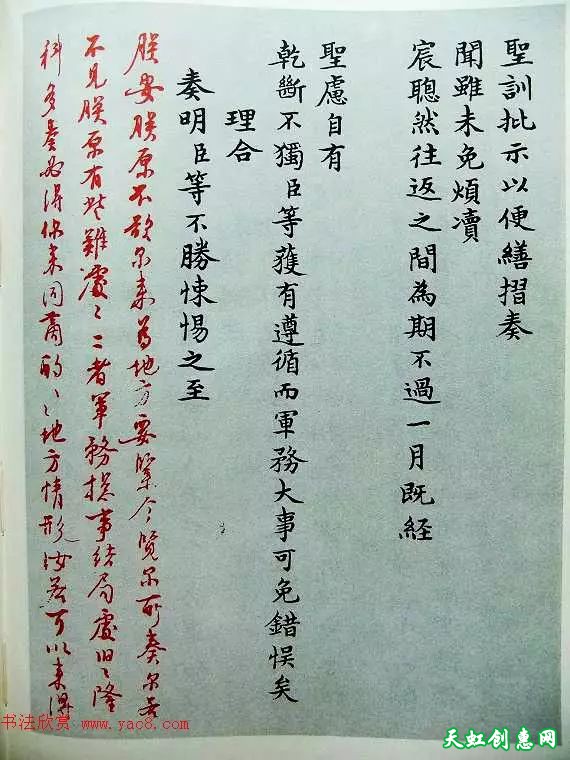 聖訓批示以便繕摺奏
聞雖未免煩瀆
宸聰然往返之間為期不過一月既經
聖慮自有
乾斷不獨臣等獲有遵循而軍務大事可免錯悞矣
理合
奏明臣等不勝悚惕之至
朕安朕原不欲尔来為地方要緊今覽尔所奏尔若
不見朕原有些難處〻〻者軍務摠事結局處旧〻隆
科多奏必得你来同商酌〻〻地方情形汝若可以来得
书法欣赏 www.yac8.com
天虹创惠网